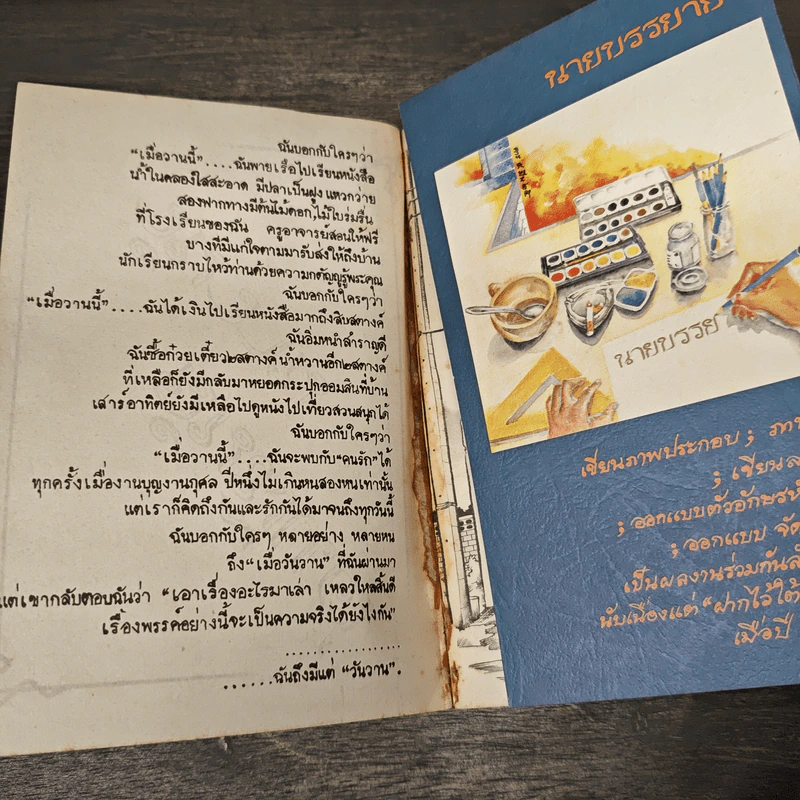 ฉันบอกกับใครๆว่า
"เมื่อวานนี้"....ฉันพายเรือไปเรียนหนังสือ
น้ำในคลองใสสะอาด มีปลาเป็นฝูง แหวกว่าย
สองฟากทางมีต้นไม้ดอก,ไม้ใบร่มรื่น
ที่โรงเรียนของฉัน ครูอาจารย์สอนให้ฟรี
บางที่มีแก่ใจตามมารับส่งให้ถึงบ้าน
นักเรียนกราบไหว้ท่านด้วยความกตัญญูรู้พระคุณ
ฉันบอกกับใครๆว่า
"เมื่อวานนี้"....ฉันได้เงินไปเรียนหนังสือมากถึงสิบสตางค์
ฉันอิ่มหนำสำราญดี
ฉันซื้อก๋วยเตี๋ยว๒สตางค์ น้ำหวานอีก๒สตางค์
ที่เหลือก็ยังมีกลับมาหยอดกระปุกออมสินที่บ้าน
เสาร์อาทิตย์ยังมีเหลือไปดูหนังไปเที่ยวสวนสนุกได้
ฉันบอกกับใครๆว่า
"เมื่อวานนี้"....ฉันจะพบกับ"คนรัก"ได้
ทุกครั้งเมื่องานบุญงานกุศล ปีหนึ่งไม่เกินหนสองหนเท่านั้น
แต่เราก็คิดถึงกันและรักกันได้มาจนถึงทุกวันนี้
ฉันบอกกับใครๆ หลายอย่าง หลายหน
ถึง"เมื่อวันวาน" ที่ฉันผ่านมา
แต่เขากลับตอบฉันว่า "เอาเรื่องอะไรมาเล่า เหลวไหลสิ้นดี
เรื่องพรรค์อย่างนี้จะเป็นความจริงได้ยังไงกัน"
..................
......ฉันถึงมีแต่ "วันวาน".
นายบรรยาย
นายบรรย
เขียนภาพประกอบ ;
; เขียน
; ออกแบบตัวอักษร
; ออกแบบ จัด
เป็นผลงานร่วมกัน
นับเนื่องแต่ "ฝากไว้ใต้
เมื่อปี